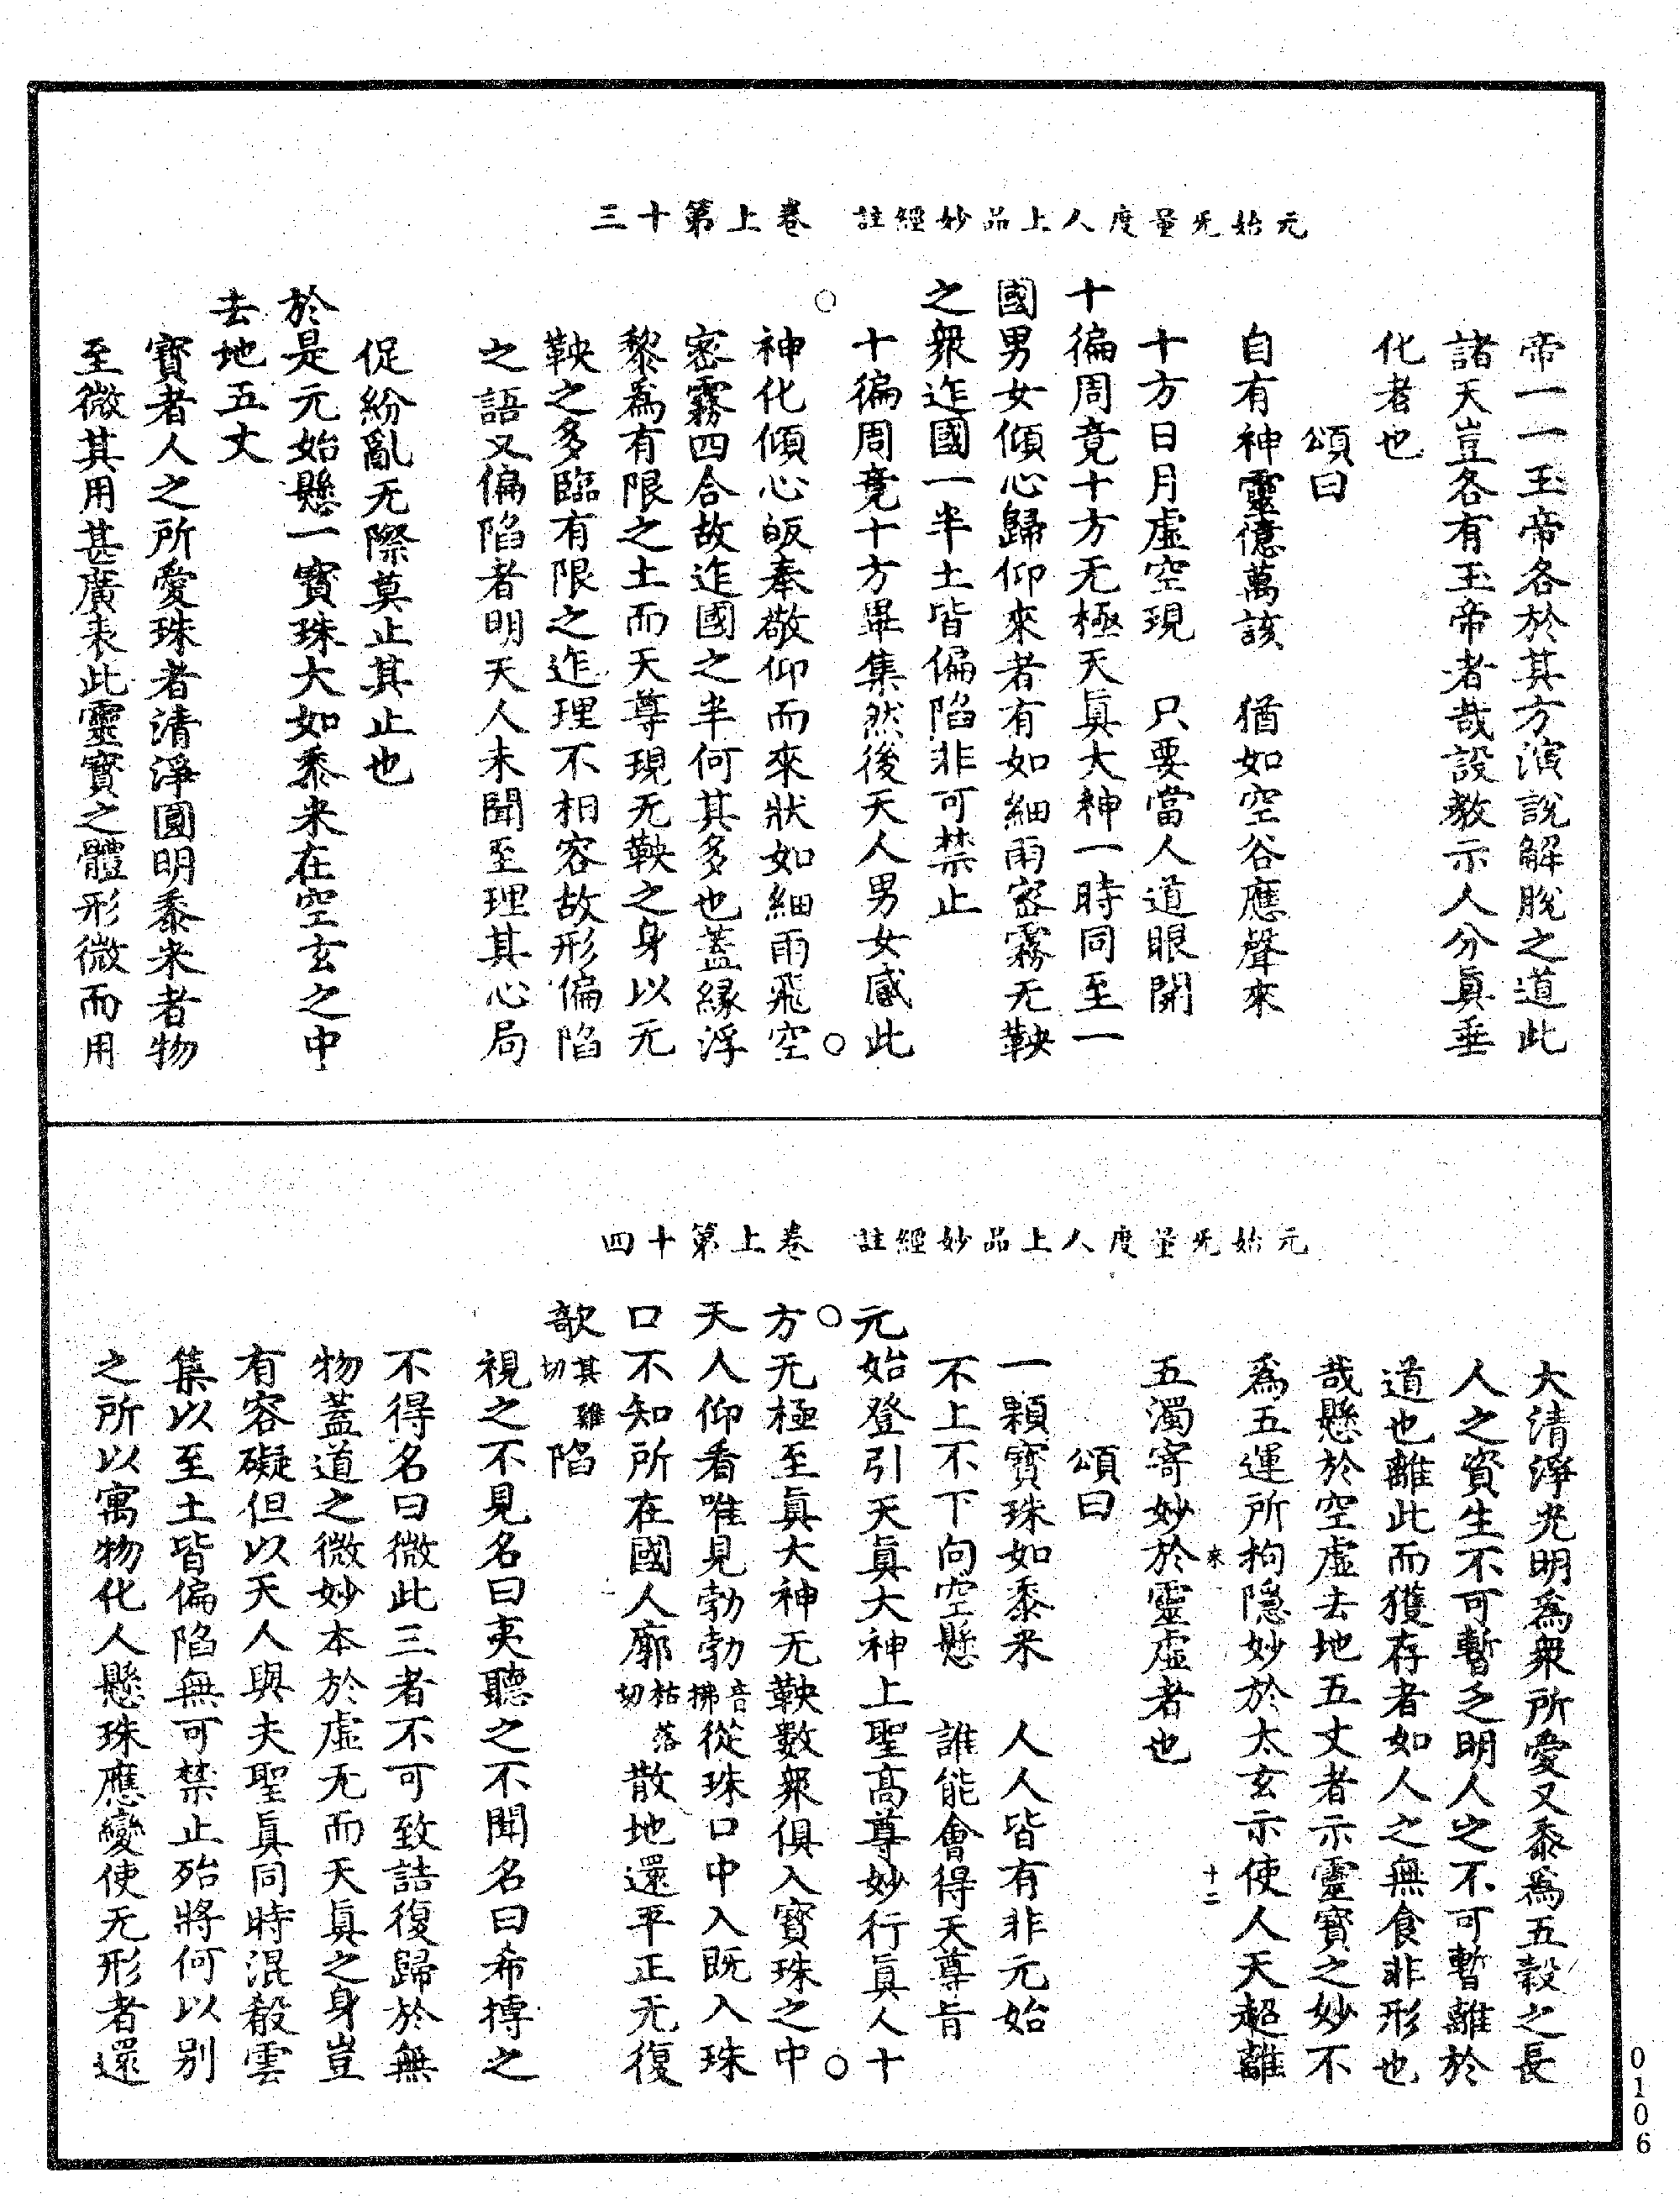 元始旡量度人上品妙經註　卷上第十三
帝一一玉帝各於其方演說解脫之道此
諸天豈各有玉帝者哉設教示人分眞垂
化者也
頌曰
自有神靈億萬該　猶如空谷應聲來
十方日月虛空現　只要當人道眼開
十徧周竟十方无極天眞大神一時同至一
國男女傾心歸仰來者有如細雨密霧无鞅
之衆迮國一半土皆偏陷非可禁止
十徧周竟十方畢集然後天人男女感此
○神化傾心皈奉敬仰而來狀如細雨飛空○
密霧四合故迮國之半何其多也蓋緣浮
黎爲有限之土而天尊現无鞅之身以无
鞅之多臨有限之迮理不相容故形偏陷
之語又偏陷者明天人未聞至理其心局
促紛亂无際莫止其止也
於是元始懸一寶珠大如黍米在空玄之中
去地五丈
寶者人之所愛珠者清淨圓明黍米者物
至微其用甚廣表此靈寶之體形微而用
元始旡量度人上品妙經註　卷上第十四
大清淨光明爲衆所愛又黍爲五穀之長
人之資生不可暫乏明人之不可暫離於
道也離此而獲存者如人之無食非形也
哉懸於空虛去地五丈者示靈寶之妙不
爲五運所拘隱妙於太玄示使人天超離
來　十二
五濁寄妙於靈虛者也
頌曰
一顆寶珠如黍米　人人皆有非元始
不上不下向空懸　誰能會得天尊旨
元始登引天眞大神上聖高尊妙行眞人十
○方无極至眞大神无鞅數衆俱入寶珠之中○
天人仰看唯見勃勃音拂從珠口中入既入珠
口不知所在國人廓枯落切散地還平正无復
欹其雞切陷
視之不見名曰夷聽之不聞名曰希摶之
不得名曰微此三者不可致詰復歸於無
物蓋道之微妙本於虛无而天眞之身豈
有容礙但以天人與夫聖眞同時混殽雲
集以至土皆偏陷無可禁止殆將何以別
之所以寓物化人懸珠應變使无形者還
0106